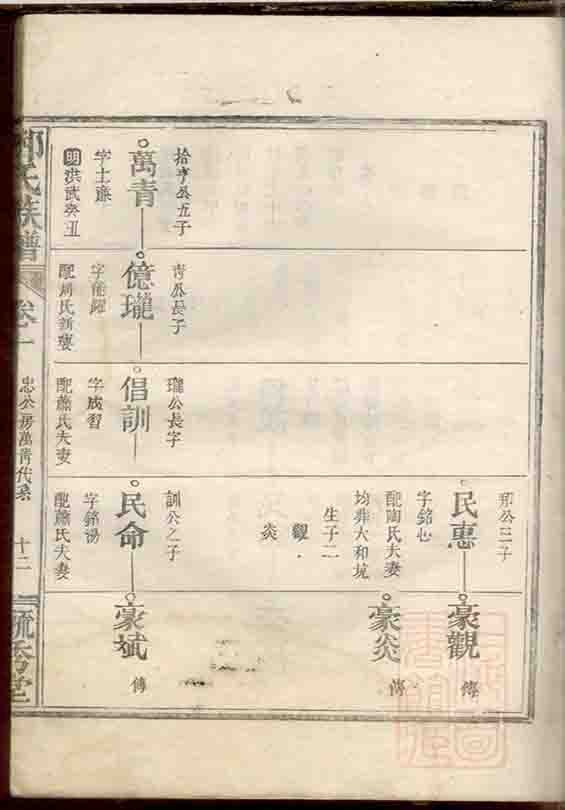 拾亨公五子
萬青
字士藤
明洪武癸丑
青公長子
億瓏
配胡氏新裹
瓏公長字
倡訓
字成習
配蕭氏夫妻
邦公三子
民惠
字銘心
配陶氏夫妻
均葬大和坑
生子二
觀
炎
訓公之子
民命
字銘湯
配蕭氏夫妻
豪觀
傳
豪炎
傳
豪斌
傳
氏族譜
卷一
忠公房萬青代系
十二